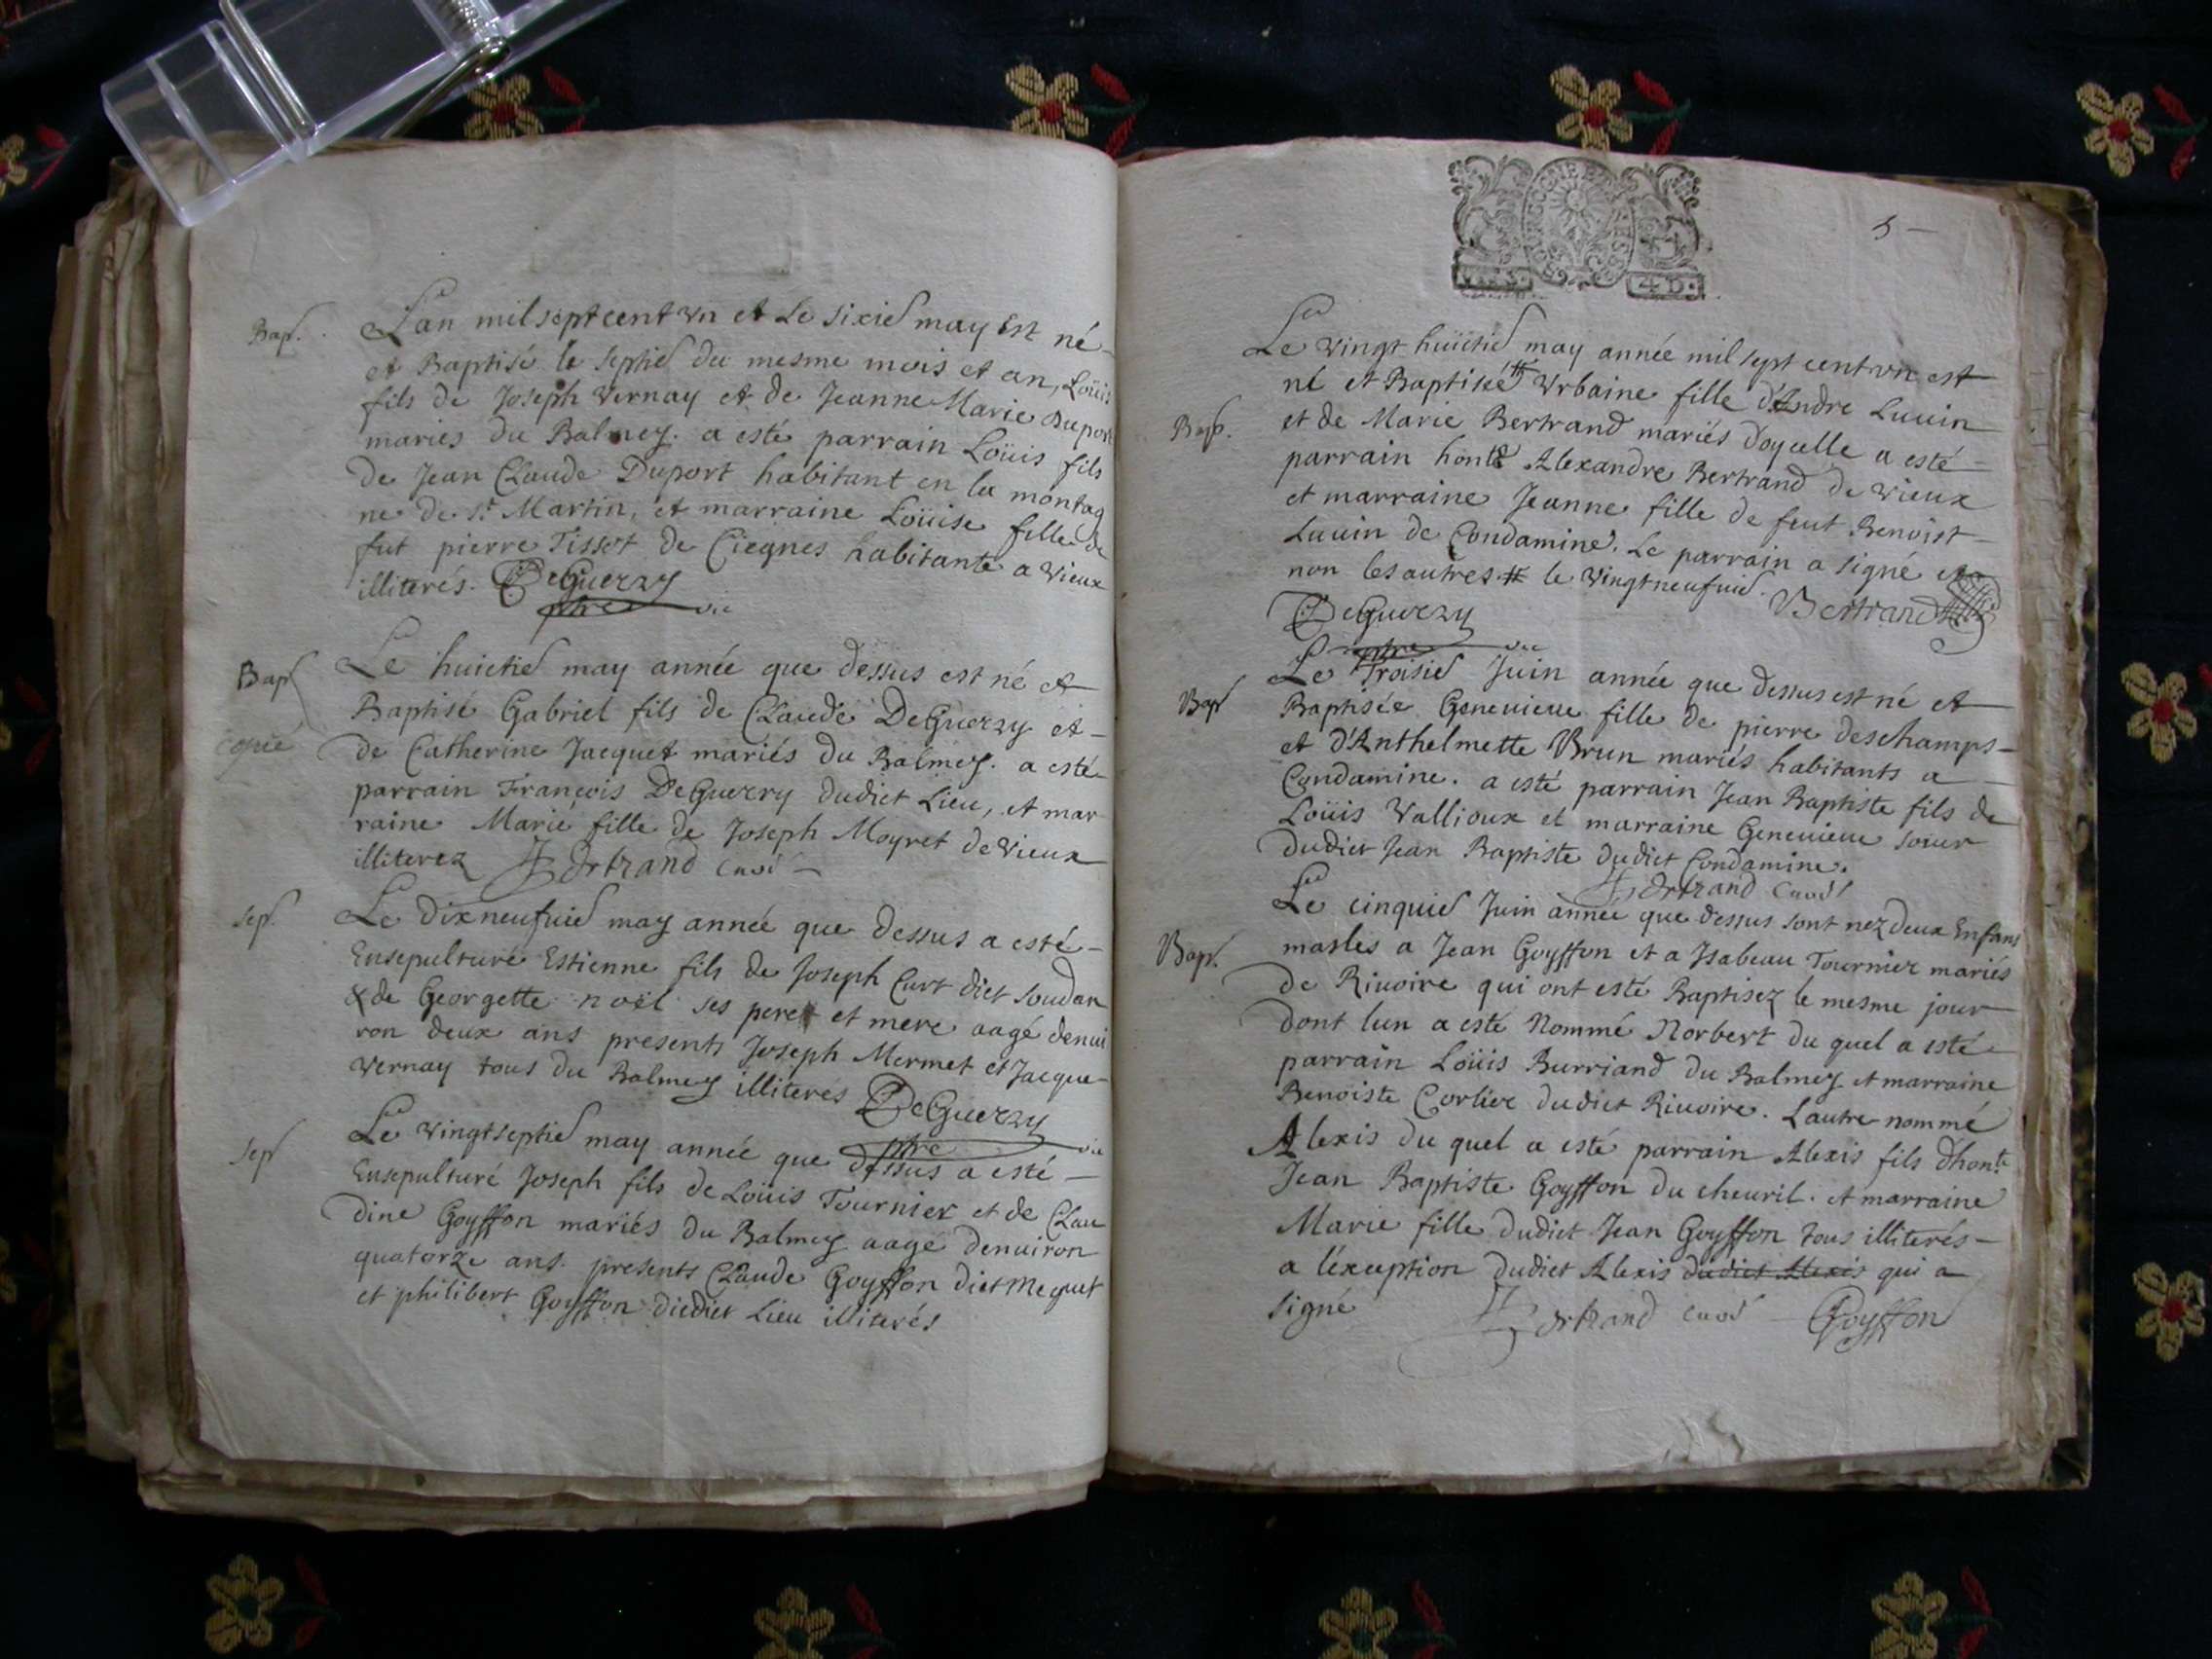 Bap.
Lan mil sept cent vn et Le sixie may Est né
et Baptisé le septie du mesme mois et an, Loüis
fils de Joseph Vernay et de Jeanne Marie Duport
mariés du Balmey. a esté parrain Loüis fils
de Jean Claude Duport habitant en la montag
ne de st Martin, et marraine Loüise fille de
fut pierre Tissot de Ciegnes habitante a Vieux
illiterés. DeGuerry
ptre vic
Bap
copié
Le huictie may année que dessus est né et
Baptisé Gabriel fils de Claude DeGuerry et
de Catherine Jacquet mariés du Balmey. a esté
parrain François DeGuerry dudict Lieu, et mar
raine Marie fille de Joseph Moyret de Vieux
illiterez Bertrand curé
Sep.
Le dixneufuie may année que dessus a esté
Ensepulturé Estienne fils de Joseph Curt dict soudan
& de Georgette noël ses pere et mere aagé denui
ron deux ans presents Joseph Mermet et Jacque
Vernay tous du Balmey illiterés DeGuerry
ptre vic
Sep
Le vingtseptie may année que dessus a esté
Ensepulturé Joseph fils de Loüis Tournier et de Clau
dine Goyffon mariés du Balmey aagé denuiron
quatorze ans. presents Claude Goyffon dict Meguet
et philibert Goyffon dudict Lieu illiterés
BOURGOGNE ET BRESSE
4 D.
5
Le vingt huictie may année mil sept cent vn est
né et Baptisée # Vrbaine fille d'Andre Luuin
Bap.
et de Marie Bertrand mariés doycelle a esté
parrain honte Alexandre Bertrand de vieux
et marraine Jeanne fille de feut Benoist
Luuin de Condamine. Le parrain a signé et
non les autres. # le vingtneufuie. Bertrand
DeGuerry
ptre vic
Bap
Le Troisie Juin année que dessus est né et
Baptisée Geneuieue fille de pierre deschamps
et d'Anthelmette Brun mariés habitants a
Condamine. a esté parrain Jean Baptiste fils de
Loüis Vallioux et marraine Geneuieue soeur
dudict Jean Baptiste dudict Condamine.
Bertrand curé
Bap.
Le cinquie Juin année que dessus sont nez deux Enfans
masles a Jean Goyffon et a Jsabeau Tournier mariés
de Riuoire qui ont esté Baptisez le mesme jour
dont lun a esté Nommé Norbert du quel a esté
parrain Loüis Burriand du Balmey et marraine
Benoiste Corlier dudict Riuoire. Lautre nommé
Alexis du quel a esté parrain Alexis fils dhonte
Jean Baptiste Goyffon du cheuril. et marraine
Marie fille dudict Jean Goyffon tous illiterés
a l'exception dudict Alexis dudict Alexis qui a
signé Bertrand curé Goyffon